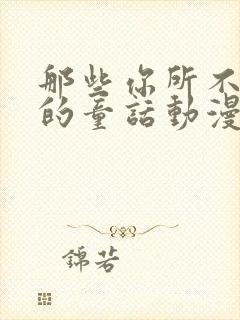 那些你所不
的童話動漫
錦若